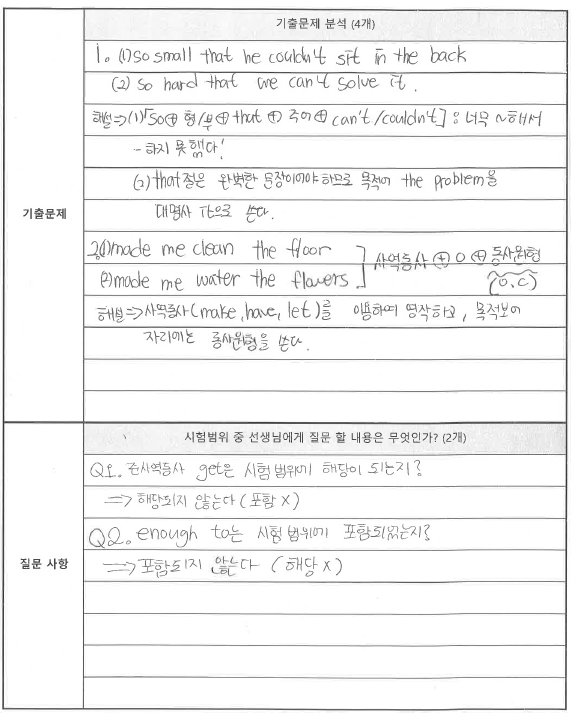 기출문제 분석 (4개)
기출문제
1. (1) so small that he couldn't sit in the back
(2) so hard that we can't solve it.
해설⇒(1)「so⊕ 형/부 ⊕ that ⊕ 주어⊕ can't/couldn't」: 너무 ~해서
-하지 못했다!
(2) that절은 완벽한 문장이어야 하므로 목적어 the problem을
대명사 it으로 쓴다.
2.(1) made me clean the floor
(2) made me water the flowers
사역동사 ⊕ O ⊕ 동사원형
(O.C)
해설⇒사역동사(make, have, let)를 이용하여 영작하고, 목적보어
자리에는 동사원형을 쓴다.
시험범위 중 선생님에게 질문 할 내용은 무엇인가? (2개)
질문 사항
Q1. 준사역동사 get은 시험 범위에 해당이 되는지?
⇒ 해당되지 않는다 (포함 X)
Q2. enough to는 시험 범위에 포함되었는지?
⇒ 포함되지 않는다 (해당 X)